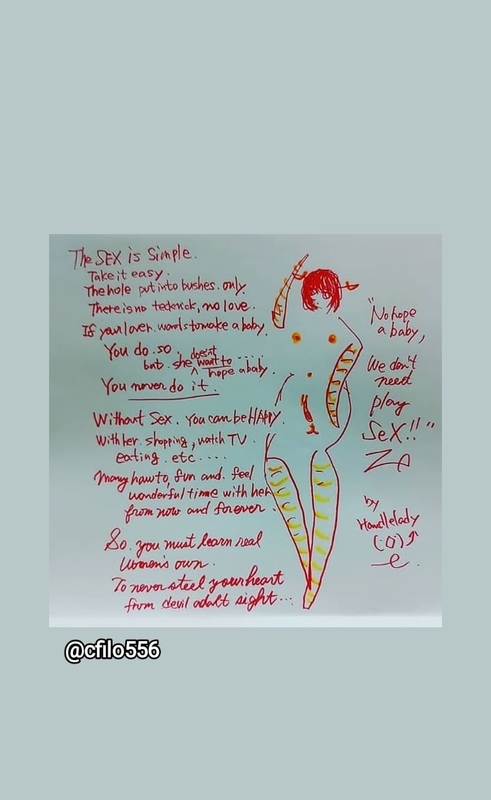 The SEX is Simple.
Take it easy.
The hole put into bushes. only.
There is no tecknick, no love.
If your lover. wants to make a baby.
You do. so.
but. she doesn't want to .....
hope a baby.
You never do it.
Without Sex. You can be HAPPY.
With her. shopping, watch TV.
eating. etc ....
Many how to, fun and. feel
wonderful time with her
from now and forever.
So. you must learn real
Women's own.
To never steel your heart
from devil adult sight...
"No hope
a baby,
We don't
need
play
Sex!!"
by
Handlelady
@cfilo556